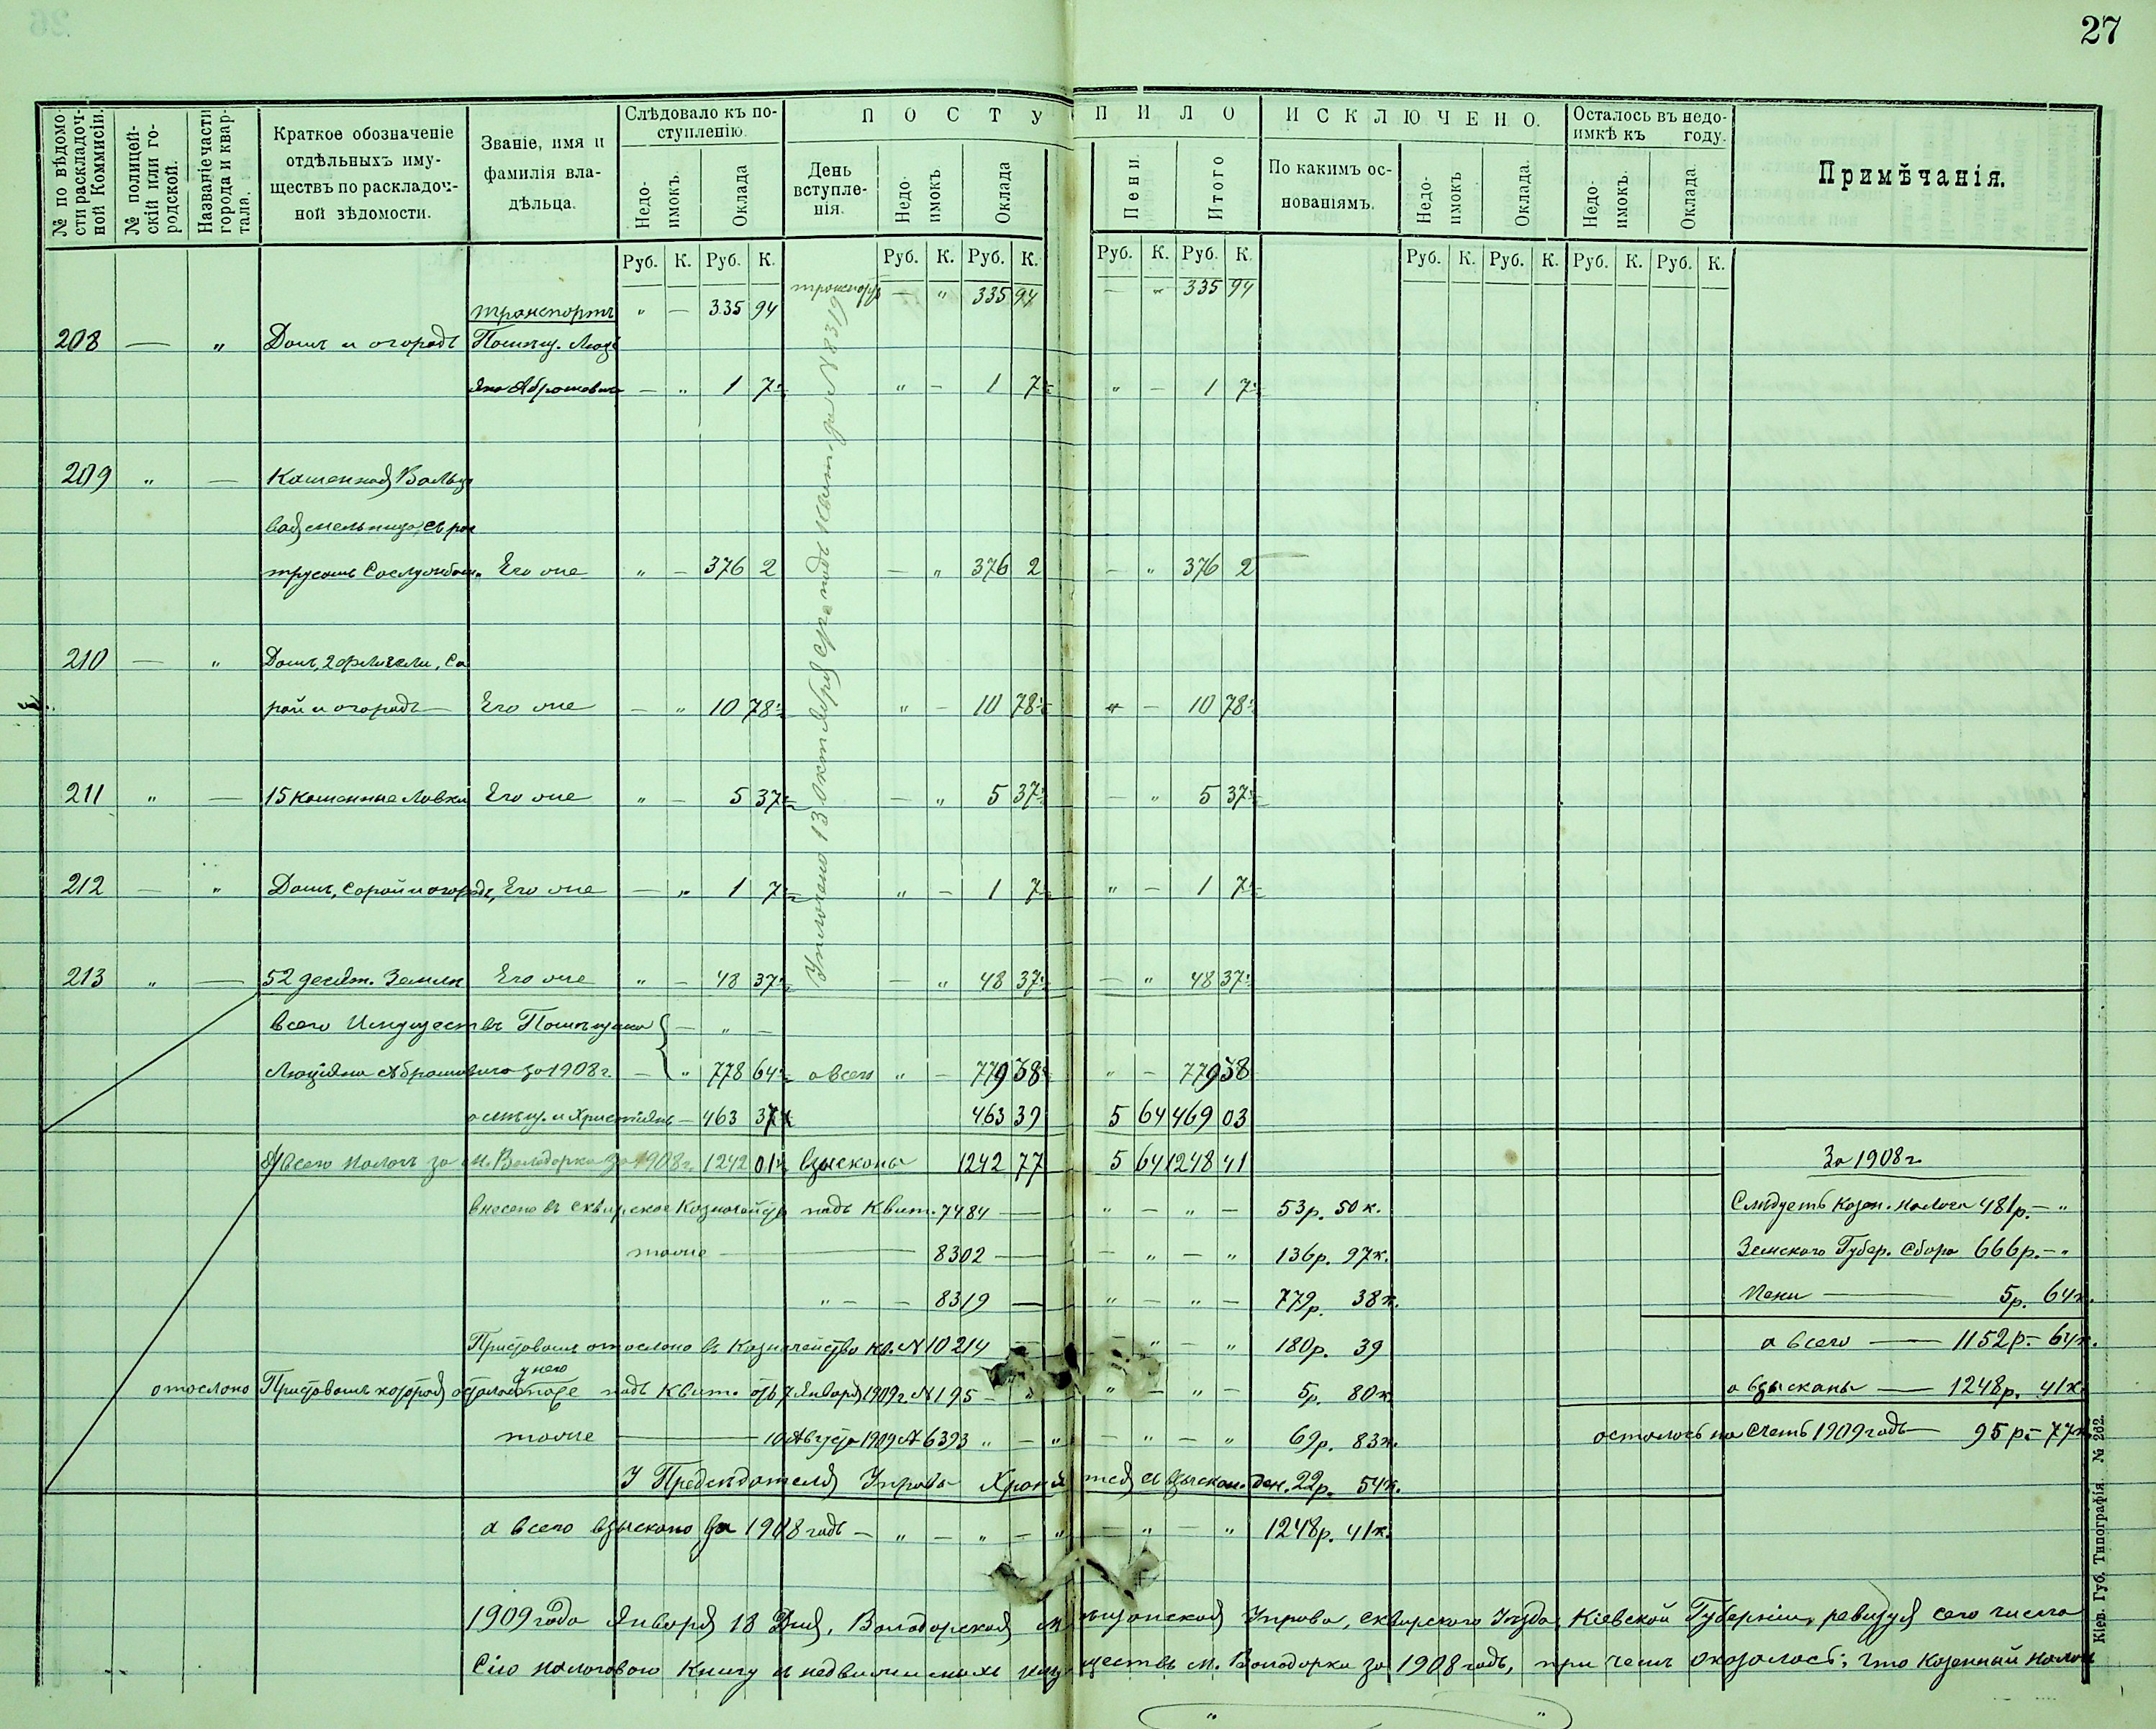 27
№ по вѣдомости раскладочной Коммисіи.
№ полицейскій или городской.
Названіе части города и квартала.
Краткое обозначеніе отдѣльныхъ имуществъ по раскладочной вѣдомости.
Званіе, имя и фамилія владѣльца.
Слѣдовало къ поступленію.
Недоимокъ.
Оклада
ПОСТУПИЛО
День вступленія.
Недоимокъ
Оклада
Пени.
Итого
ИСКЛЮЧЕНО.
По какимъ основаніямъ.
Недоимокъ
Оклада.
Осталось въ недоимкѣ къ году.
Недоимокъ.
Оклада.
Примѣчанія.
Руб. К. Руб. К. Руб. К. Руб. К. Руб. К. Руб. К. Руб. К. Руб. К. Руб. К. Руб. К.
транспортъ " — 335 94 транспортъ — " 335 94 — " 335 94
208 — " Домъ и огородъ Помѣщ. Люці
яна Абрамовича — " 1 7½ " — 1 7½ " — 1 7½
209 " — Каменная Вальцо
вая мельница, съ
Его же " — 376 2 — " 376 2 — " 376 2
210 — " Домъ, 2 флигеля, са
рай и огородъ — Его же — " 10 78½ " — 10 78½ " — 10 78½
211 " — 15 каменные лавки Его же " — 5 37½ — " 5 37½ — " 5 37½
212 — " Домъ, сарай и огородъ, Его же — " 1 7½ " — 1 7½ " — 1 7½
213 " — 52 десят. Земли Его же " — 48 37½ — " 48 37½ — " 48 37½
Уплочено 13 Октября сего года Квитанція № 8319
всего Имуществъ Помѣщика — " —
Люціяна Абрамовича за 1908 г. — " 778 64½ а всего " — 779 38 " — 779 38
а мѣщ. и Христіянъ — 463 37 463 39 5 64 469 03
А всего налога за м. Володарка за 1908 г. 1242 01½ взыскано 1242 77 5 64 1248 41
За 1908 г.
внесено въ Сквирское Казначейство подъ Квит. 7484 — " — " — 53р. 50к.
Слѣдуетъ Казен. налога 481р. — "
тоже — 8302 — — " — " 136р. 97к.
Земского Губер. Сбора 666р. — "
" — — 8319 — " — " — 779р. 38к.
Пени — 5р. 64к.
Приставомъ отослано въ Казначейство кв. № 10214 — — " — " 180р. 39
а всего — 1152р. — 64к.
у него
отослано Приставомъ которая осталось подъ Квит. отъ 7 Января 1909 г. № 195 — " — " — 5р. 80к.
а взыскано — 1248р. 41к.
тоже — 10 Августа 1909 № 6393 " — " — " — " 69р. 83к.
осталось на счетъ 1909 годъ — 95р. — 77к.
У Предсѣдателя Управы Хранится взыскан. ден. 22р. 54к.
а всего взыскано за 1908 годъ — " — " — " — " — " 1248р. 41к.
1909 года Января 18 Дня, Володарская мѣщанская Управа, Сквирского Уѣзда, Кіевской Губерніи, ревизуя сего числа
Сію налоговою Книгу и недвижимыхъ имуществъ м. Володарки за 1908 годъ, при чемъ оказалось: что Казенный налогъ
Кіев. Губ. Типографія. № 262.